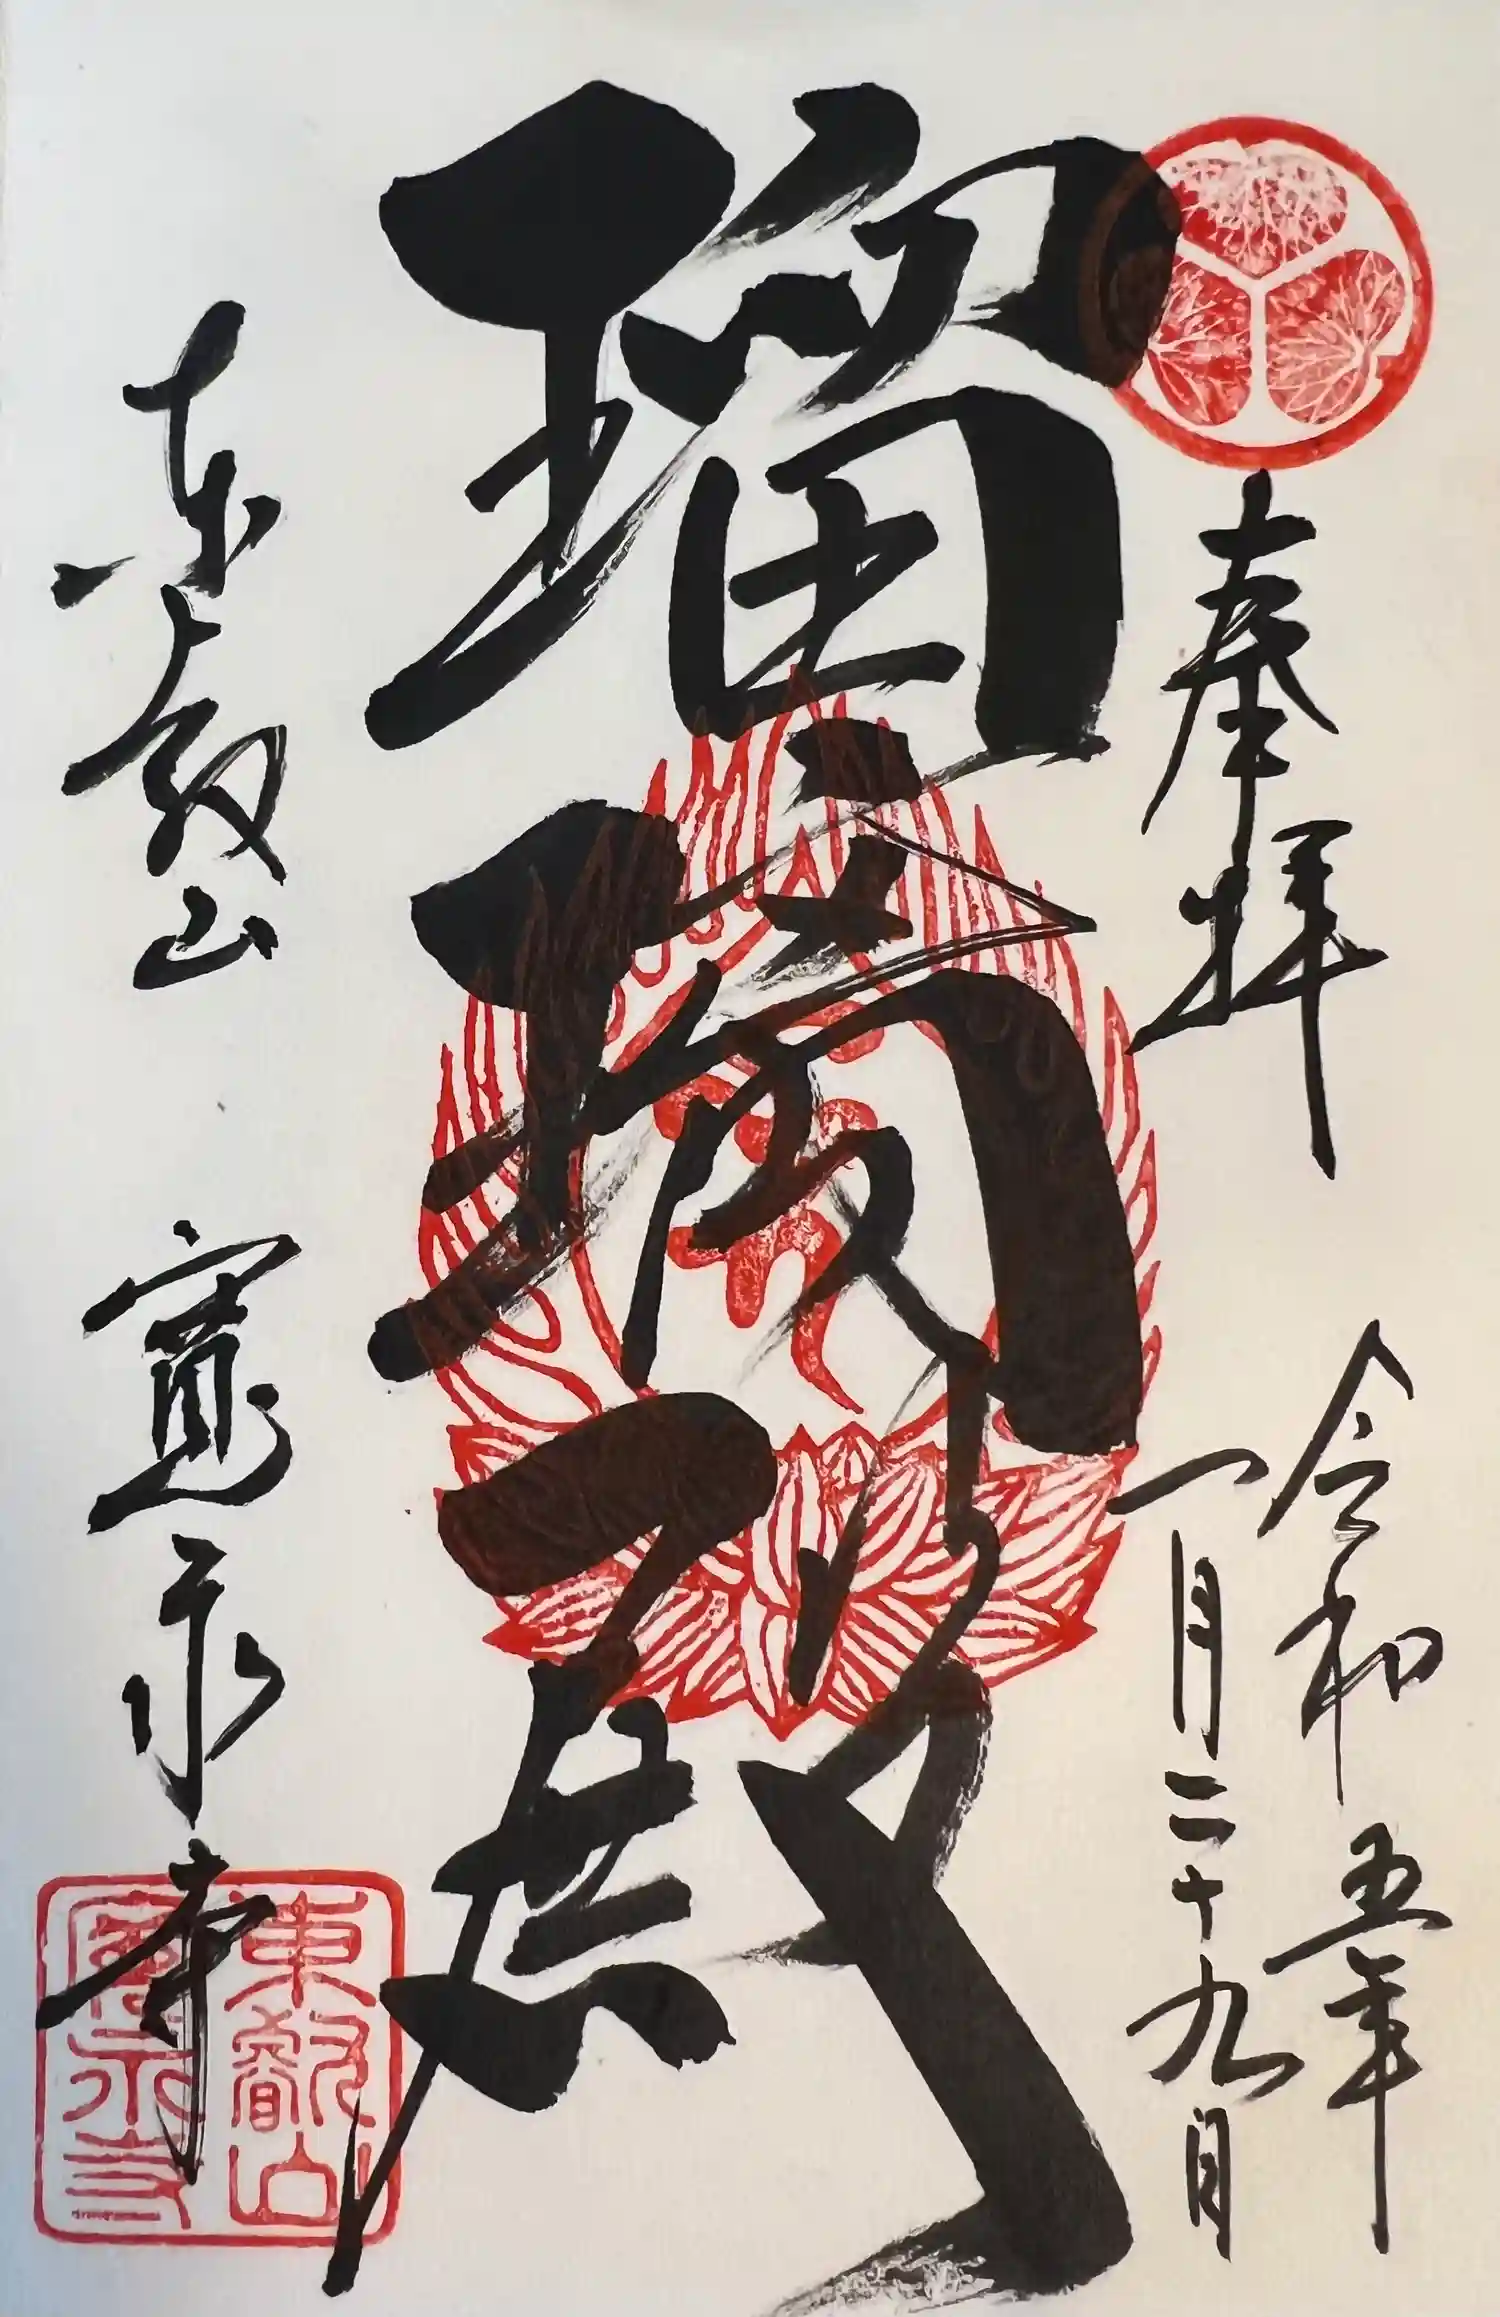 奉拝
令和五年
一月二十九日
瑠璃殿
東叡山 寛永寺
東叡山
寛永寺